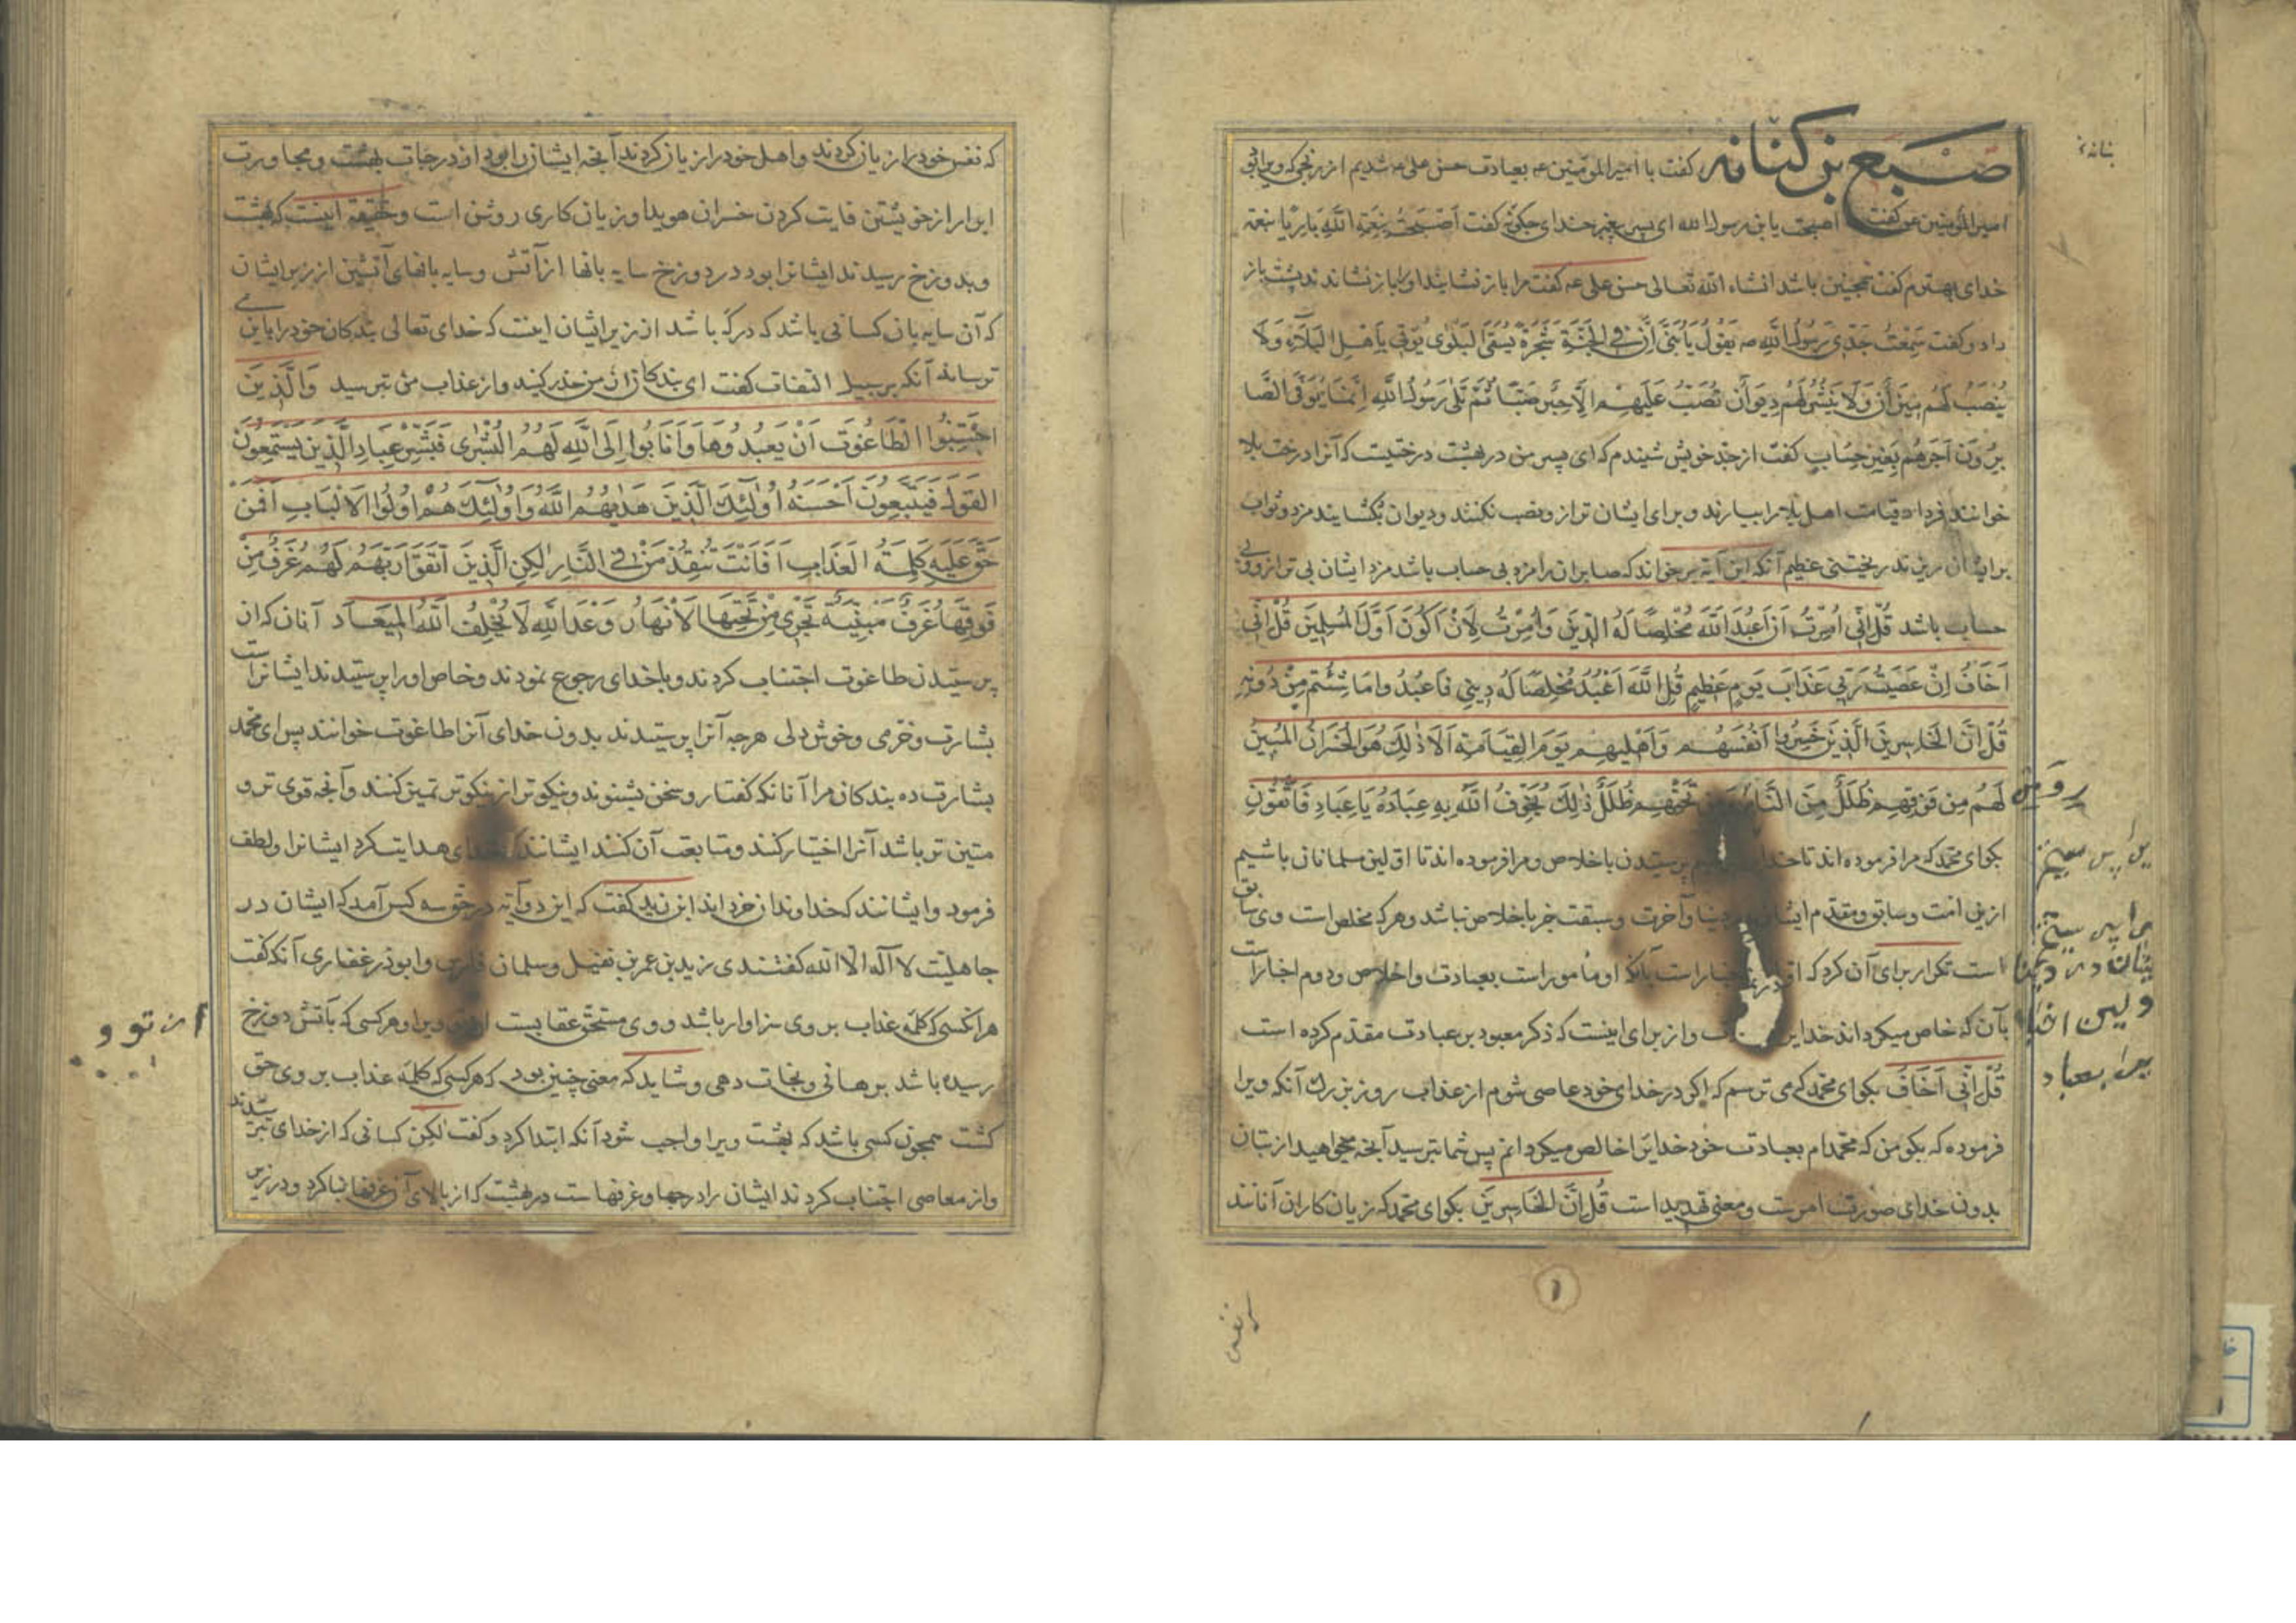 اصبع بن کنانه گفت با امیر المومنین عه بعیادت حسن علی عه شدیم از رنجی که ویرا بود
امیر المؤمنین عه گفت اصبحت یا بن رسول الله ای پسر پیغمبر خدای چگونه گفت اَصْبَحْتُ بِنِعْمَةِ اللهِ بَارِیًا بنعمة
خدای بهترم گفت همچنین باشد انشاء الله تعالی حسن علی عه گفت مرا باز نشانید او را باز نشاندند پشت باز
داد و گفت سَمِعْتُ جَدّی رَسُولَ اللهِ صه یَقُولُ یَا بُنَیَّ اِنَّ فِی الْجَنَّةِ شَجَرَةً یُسَمّی الْبَلْوی یُؤتی بِاَهْلِ الْبَلَآءِ وَلَا
یُنْصَبُ لَهُمْ مِیزَانٌ وَلَا یُنْشَرُ لَهُمْ دِیوَانٌ تُصَبُّ عَلَیْهِمُ الْاَجْرُ صَبًّا ثُمَّ تَلَی رَسُولُ اللهِ اِنَّمَا یُوَفَّی الصَّا
بِرُونَ اَجْرَهُمْ بِغَیْرِ حِسَابٍ گفت از جد خویش شنیدم که ای پسر من در بهشت درختیست که آنرا درخت بلا
خوانند فردا قیامت اهل بلا را بیارند و برای ایشان ترازو نصب نکنند و دیوان نگشایند مزد و ثواب
برایشان ریزند ریختنی عظیم آنکه این آیه بر خواند که صابران را مزد بی حساب باشد مزد ایشان بی ترازو و بی
حساب باشد قُلْ اِنّی اُمِرْتُ اَنْ اَعْبُدَ اللهَ مُخْلِصًا لَهُ الدّینَ وَاُمِرْتُ لِاَنْ اَکُونَ اَوَّلَ الْمُسْلِمِینَ قُلْ اِنّی
اَخَافُ اِنْ عَصَیْتُ رَبّی عَذَابَ یَوْمٍ عَظِیمٍ قُلِ اللهَ اَعْبُدُ مُخْلِصًا لَهُ دِینِی فَاعْبُدُوا مَا شِئْتُمْ مِنْ دُونِهِ
قُلْ اِنَّ الْخَاسِرِینَ الَّذِینَ خَسِرُوا اَنْفُسَهُمْ وَاَهْلِیهِمْ یَوْمَ الْقِیَامَةِ اَلَا ذٰلِکَ هُوَ الْخُسْرَانُ الْمُبِینُ
لَهُمْ مِنْ فَوْقِهِمْ ظُلَلٌ مِنَ النَّارِ وَمِنْ تَحْتِهِمْ ظُلَلٌ ذٰلِکَ یُخَوِّفُ اللهُ بِهِ عِبَادَهُ یَا عِبَادِ فَاتَّقُونِ
بگو ای محمد که مرا فرموده اند تا خدا پرستیدن با خلاص و مرا فرموده اند تا اولین مسلمانان باشیم
ازین امت و سابق و مقدم ایشان دنیا و آخرت و سبقت جز باخلاص نباشد و هر که مخلص است وی سابق
است تکرار برای آن کرد که اخبار است بآنکه او مأمور است بعبادت و اخلاص و دوم اخبار است
بآن که خاص میگرداند خدایرا و از برای اینست که ذکر معبود بر عبادت مقدم کرده است
قُلْ اِنّی اَخَافُ بگو ای محمد که می ترسم که اگر در خدای خود عاصی شوم از عذاب روز بزرگ آنکه ویرا
فرموده که بگو من که محمدام بعبادت خود خدایرا خالص میگردانم پس شما بپرستید آنچه میخواهید از بتان
بدون خدای صورت امرست و معنی تهدید است قُلْ اِنَّ الْخَاسِرِینَ بگو ای محمد که زیان کاران آنانند
۱
که نفس خود را زیان کردند و اهل خود را زیان کردند آنچه ایشان را بود از درجات بهشت و مجاورت
ابرار از خویشتن فایت کردن خسران هویدا و زیان کاری روشن است و حقیقة اینست که بهشت
و بدوزخ رسیدند ایشانرا بود در دوزخ سایه بانها از آتش و سایه بانهای آتشین از زیر ایشان
که آن سایه بان کسانی باشد که در که باشد از زیر ایشان اینست که خدای تعالی بندگان خود را باین می
ترساند آنکه بر سبیل التفات گفت ای بندگان از من حذر کنید و از عذاب من بترسید وَالَّذِینَ
اجْتَنَبُوا الطَّاغُوتَ اَنْ یَعْبُدُوهَا وَاَنَابُوا اِلَی اللهِ لَهُمُ الْبُشْرَی فَبَشِّرْ عِبَادِ الَّذِینَ یَسْتَمِعُونَ
الْقَوْلَ فَیَتَّبِعُونَ اَحْسَنَهُ اُولٰئِکَ الَّذِینَ هَدٰیهُمُ اللهُ وَاُولٰئِکَ هُمْ اُولُوا الْاَلْبَابِ اَفَمَنْ
حَقَّ عَلَیْهِ کَلِمَةُ الْعَذَابِ اَفَاَنْتَ تُنْقِذُ مَنْ فِی النَّارِ لٰکِنِ الَّذِینَ اتَّقَوْا رَبَّهُمْ لَهُمْ غُرَفٌ مِنْ
فَوْقِهَا غُرَفٌ مَبْنِیَّةٌ تَجْرِی مِنْ تَحْتِهَا الْاَنْهَارُ وَعْدَ اللهِ لَا یُخْلِفُ اللهُ الْمِیعَادَ آنان که از
پرستیدن طاغوت اجتناب کردند و باخدای رجوع نمودند و خاص او را پرستیدند ایشانراست
بشارت و خرمی و خوش دلی هرچه آنرا پرستیدند بدون خدای آنرا طاغوت خوانند پس ای محمد
بشارت ده بندگان مرا آنانکه گفتار و سخن بشنوند و نیکوتر از نیکوتر تمییز کنند و آنچه قوی تر و
متین تر باشد آنرا اختیار کنند و متابعت آن کنند ایشانند که خدای هدایت کرد ایشانرا و لطف
فرمود و ایشانند که خداوندان خرد اند ابن زید گفت که این دو آیه در حق سه کس آمد که ایشان در
جاهلیت لا اله الا الله گفتندی زید بن عمر بن نفیل و سلمان فارسی و ابوذر غفاری آنکه گفت
هر آنکسی که کلمه عذاب بر وی سزاوار باشد و وی مستحق عقابست ویرا و هر کسی که بآتش دوزخ
رسیده باشد برهانی و نجات دهی و شاید که معنی چنین بود که هر کسی که کلمه عذاب بر وی حق
گشت همچون کسی باشد که بهشت ویرا واجب شود آنکه ابتدا کرد و گفت لکن کسانی که از خدای بترسیدند
و از معاصی اجتناب کردند ایشان را درجها و غرفهاست در بهشت که از بالای آن غرفها بنا کرد و در زیر
از تو و